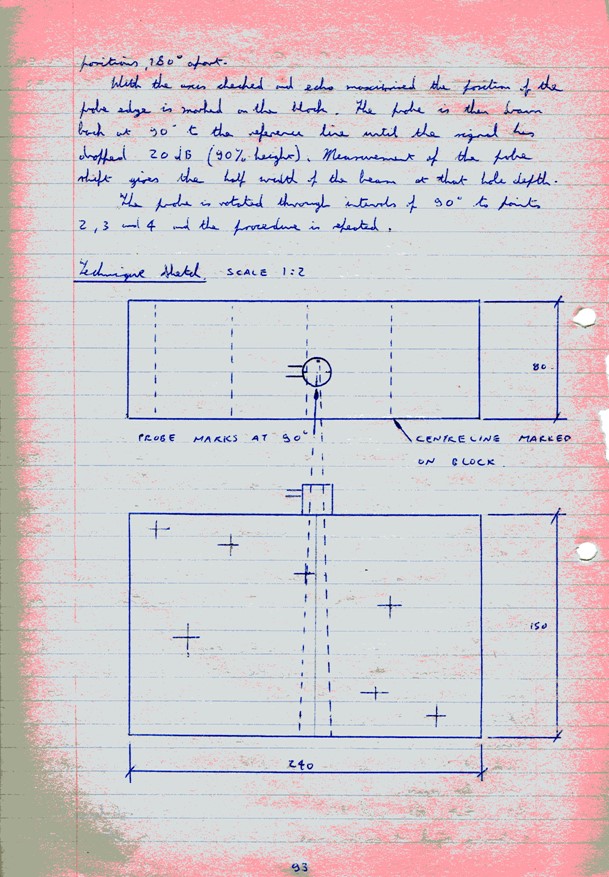 positions, 180° apart.
With the axes checked and echo maximised the position of the
probe edge is marked on the block. The probe is then drawn
back at 90° to the reference line until the signal has
dropped 20 dB (90% height). Measurement of the probe
shift gives the half width of the beam at that hole depth.
The probe is rotated through intervals of 90° to points
2, 3 and 4 and the procedure is repeated.
Technique Sketch. SCALE 1:2
80
PROBE MARKS AT 90°
CENTRELINE MARKED
ON BLOCK
150
240
93